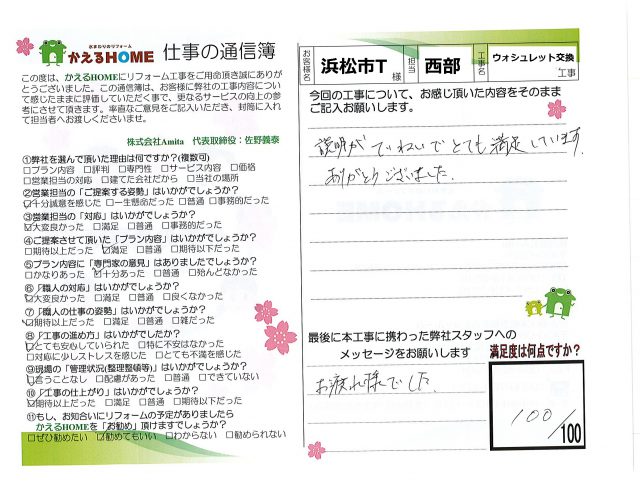 水まわりのリフォーム
かえるHOME 仕事の通信簿
この度は、かえるHOMEにリフォーム工事をご用命頂き誠にありが
とうございました。この通信簿は、お客様に弊社の工事内容につい
て感じたままに評価していただく事で、更なるサービスの向上の参
考にさせて頂きます。率直なご意見をご記入いただき、封筒に入れ
て担当者へお渡しくださいませ。
株式会社Amita 代表取締役:佐野義泰
①弊社を選んで頂いた理由は何ですか?(複数可)
□プラン内容 □評判 □専門性 □サービス内容 □価格
□営業担当の対応 □建てた会社だから □当社の場所
②営業担当の「ご提案する姿勢」はいかがでしょうか?
☑十分誠意を感じた □一生懸命だった □普通 □事務的だった
③営業担当の「対応」はいかがでしょうか?
☑大変良かった □満足 □普通 □事務的だった
④ご提案させて頂いた「プラン内容」はいかがでしょうか?
□期待以上だった ☑満足 □普通 □期待以下だった
⑤プラン内容に「専門家の意見」はありましたでしょうか?
□かなりあった ☑十分あった □普通 □殆んどなかった
⑥「職人の対応」はいかがでしょうか?
☑大変良かった □満足 □普通 □良くなかった
⑦「職人の仕事の姿勢」はいかがでしょうか?
☑期待以上だった □満足 □普通 □雑だった
⑧「工事の進め方」はいかがでしたか?
☑とても安心していられた □特に不安はなかった
□対応に少しストレスを感じた □とても不満を感じた
⑨現場の「管理状況(整理整頓等)」はいかがでしょうか?
☑言うことなし □配慮があった □普通 □できていない
⑩「工事の仕上がり」はいかがでしょうか?
☑期待以上だった □満足 □普通 □期待以下だった
⑪もし、お知合いにリフォームの予定がありましたら
かえるHOMEを「お勧め」頂けますでしょうか?
□ぜひ勧めたい ☑勧めてもいい □わからない □勧められない
お客様名 浜松市T 様 担当 西部 工事名 ウォシュレット交換 工事
今回の工事について、お感じ頂いた内容をそのまま
ご記入お願いします。
説明がていねいでとても満足しています
ありがとうございました。
最後に本工事に携わった弊社スタッフへの
メッセージをお願いします
お疲れ様でした。
満足度は何点ですか?
100/100